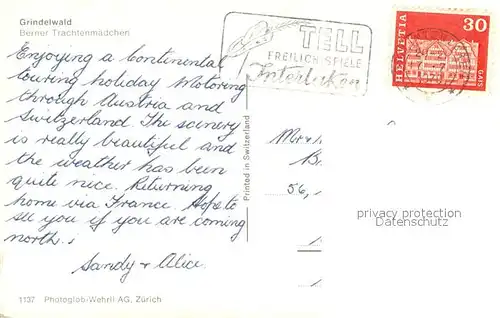 Grindelwald
Berner Trachtenmädchen
Enjoying a Continental
touring holiday Motoring
through Austria and
Switzerland. The scenery
is really beautiful and
the weather has been
quite nice. Returning
home via France. Hope to
see you if you are coming
north.
Sandy + Alice.
1137 Photoglob-Wehrli AG, Zürich
Printed in Switzerland
TELL
FREILICHSPIELE
Interlaken
HELVETIA
30
GAIS
Mr +
56,
privacy protection
Datenschutz